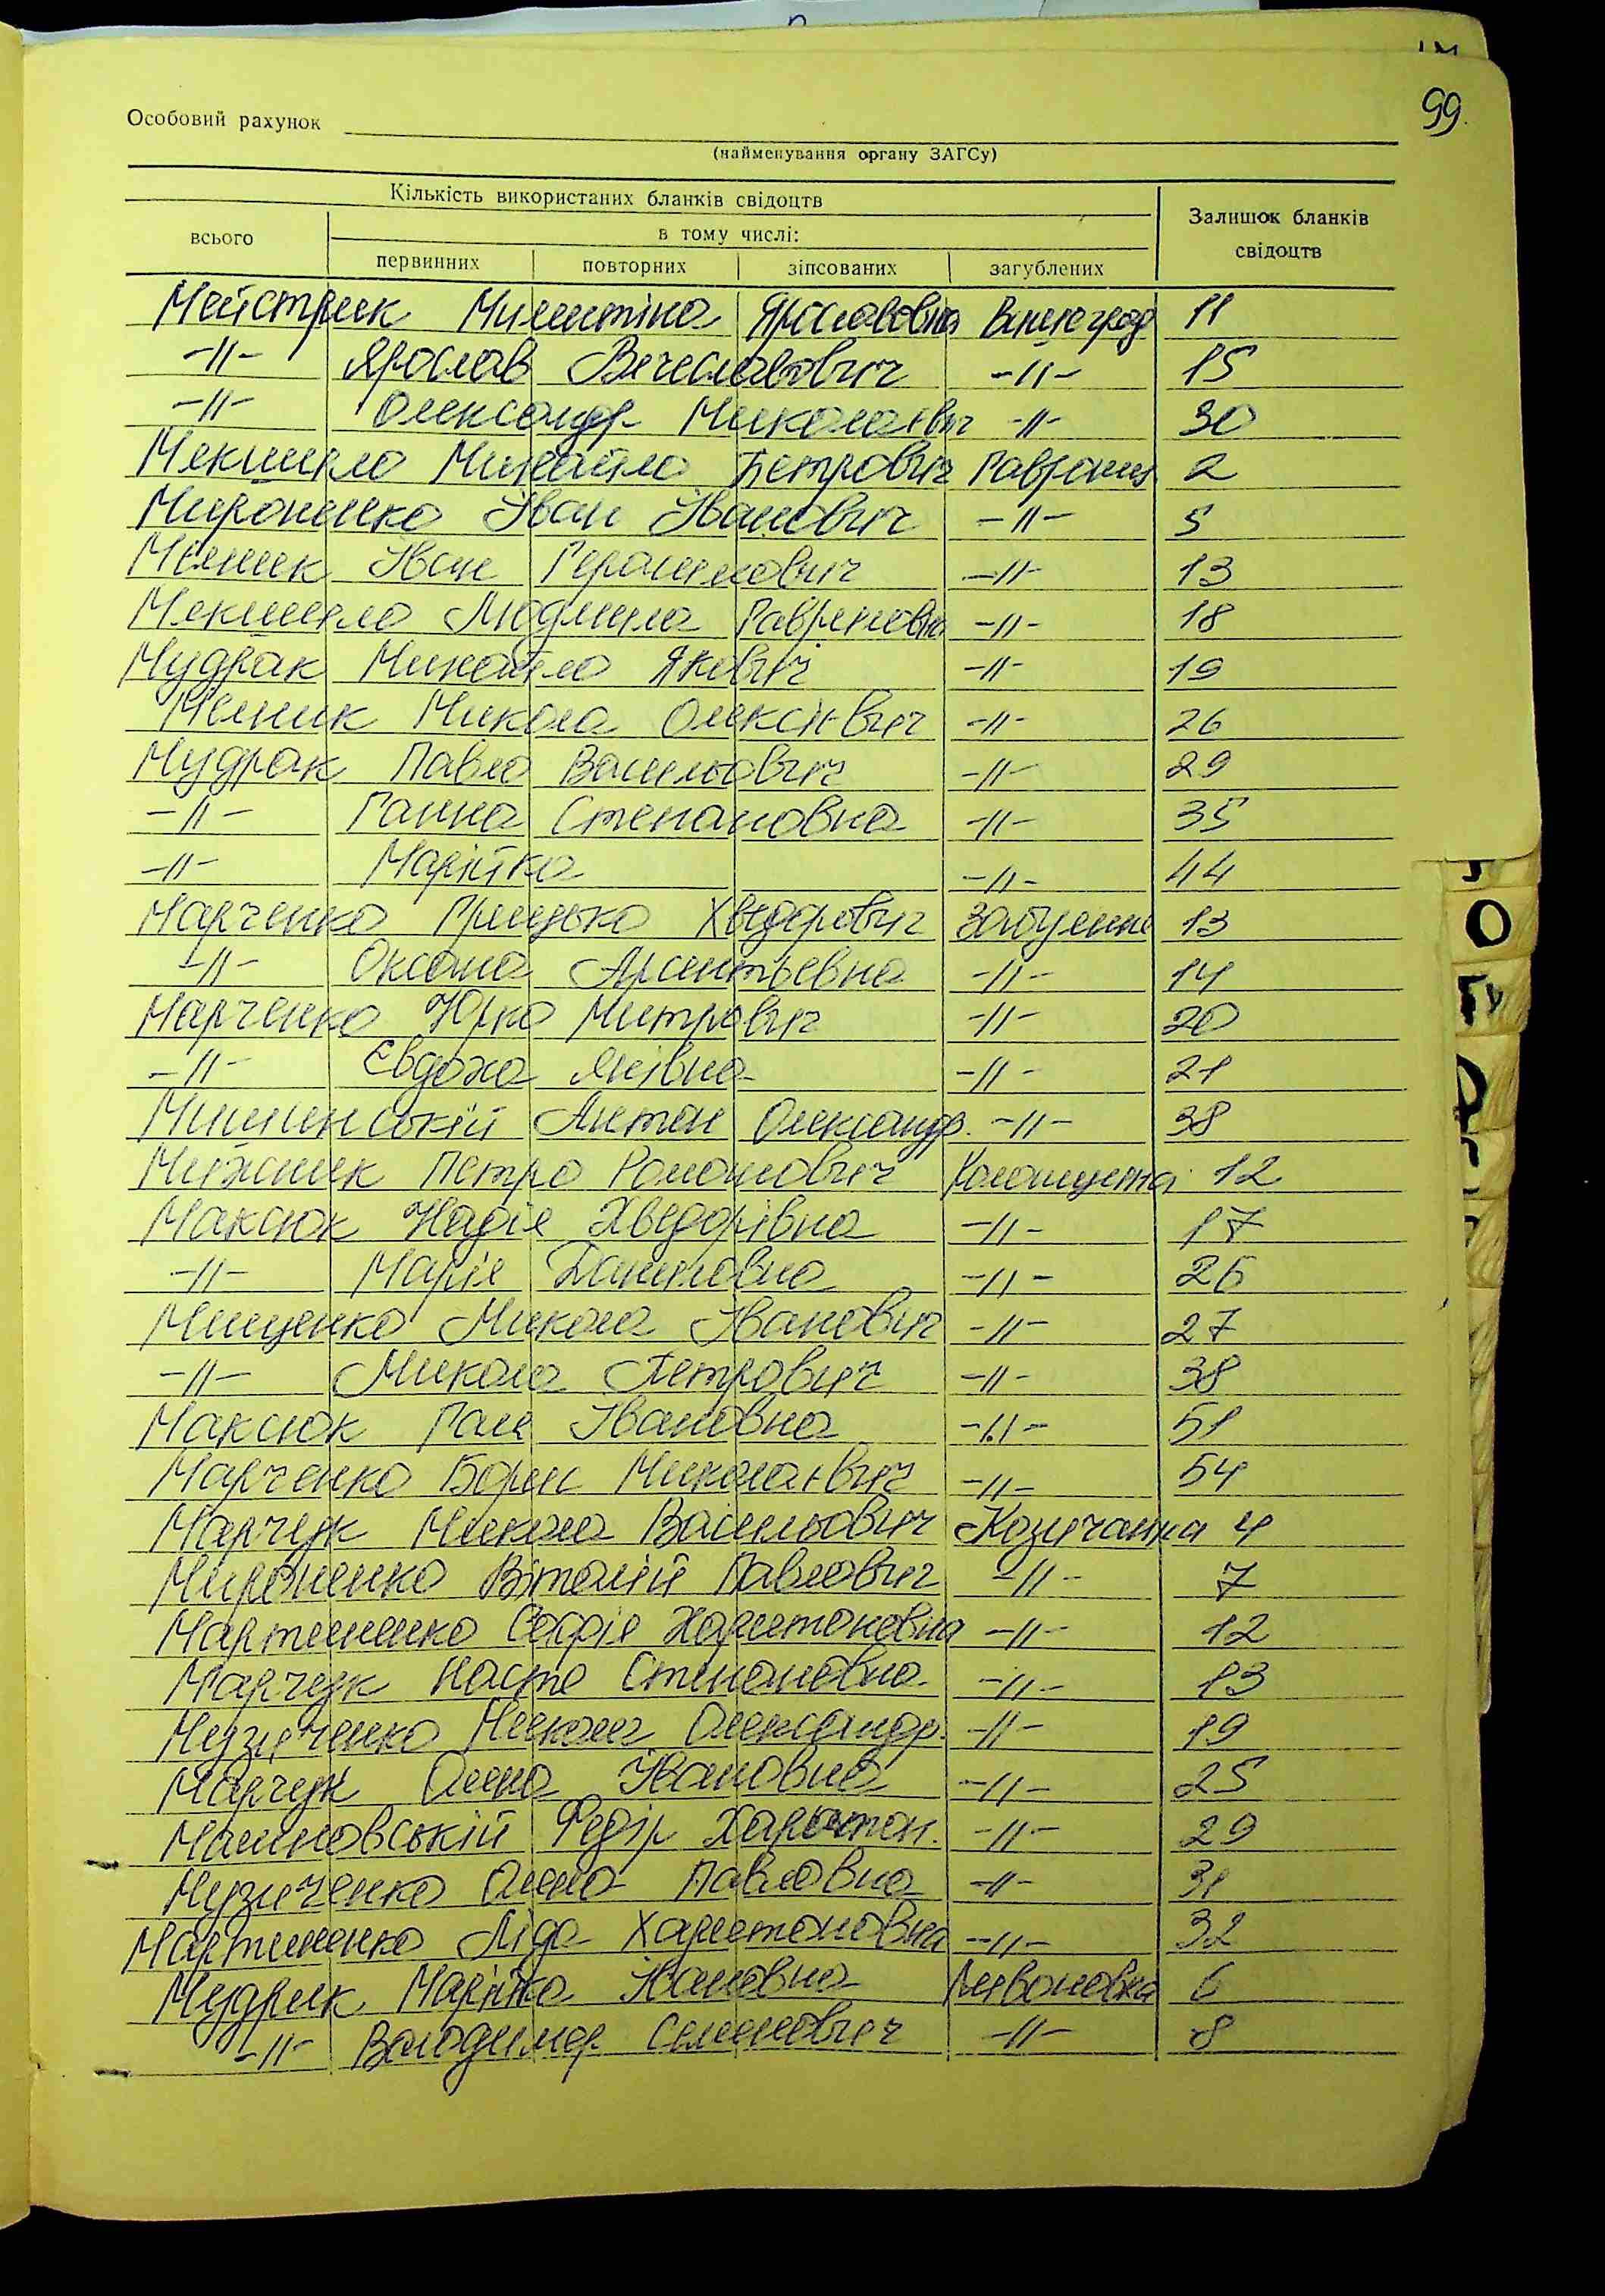 99.
Особовий рахунок
(найменування органу ЗАГСу)
Кількість використаних бланків свідоцтв
Залишок бланків свідоцтв
всього
в тому числі:
первинних повторних зіпсованих загублених
Мейстрик Ярославовна Виноград 11
-//- Ярослав Вечеславович -//- 15
-//- Олександр Миколаєвич -//- 30
Михайло Петрович 2
Мироненко Іван Іванович -//- 5
Мельник Іван Герасимович -//- 13
Людмила -//- 18
Мудрак Михайло Якович -//- 19
Мельник Микола Олексієвич -//- 26
Мудрак Павло Васильович -//- 29
-//- Ганна Степановна -//- 35
-//- Марійка -//- 44
Марченко Грицько Хведорович 13
-//- Оксана Арсентьевна -//- 14
Марченко Юрко Митрович -//- 20
-//- Євдоха Яківна -//- 21
Антон Олександр. -//- 38
Петро Романович 12
Максюк Надія Хведорівна -//- 17
-//- Марія Даниловна -//- 26
Мищенко Микола Іванович -//- 27
-//- Микола Петрович -//- 38
Максюк Галя Івановна -//- 51
Марченко Борис Миколаєвич -//- 54
Марчук Микола Васильович Козичанка 4
Мироненко Віталій Павлович -//- 7
Мартиненко Софія Харитоновна -//- 12
Марчук Настя Степановна -//- 13
Музиченко Микола Олександр. -//- 19
Марчук Олена Івановна -//- 25
Малиновській Федір Харытон. -//- 29
Музиченко Олена Павловна -//- 31
Мартиненко Ліда Харитоновна -//- 32
Мудрик Марійка Івановна 6
-//- Володимер Семенович -//- 8